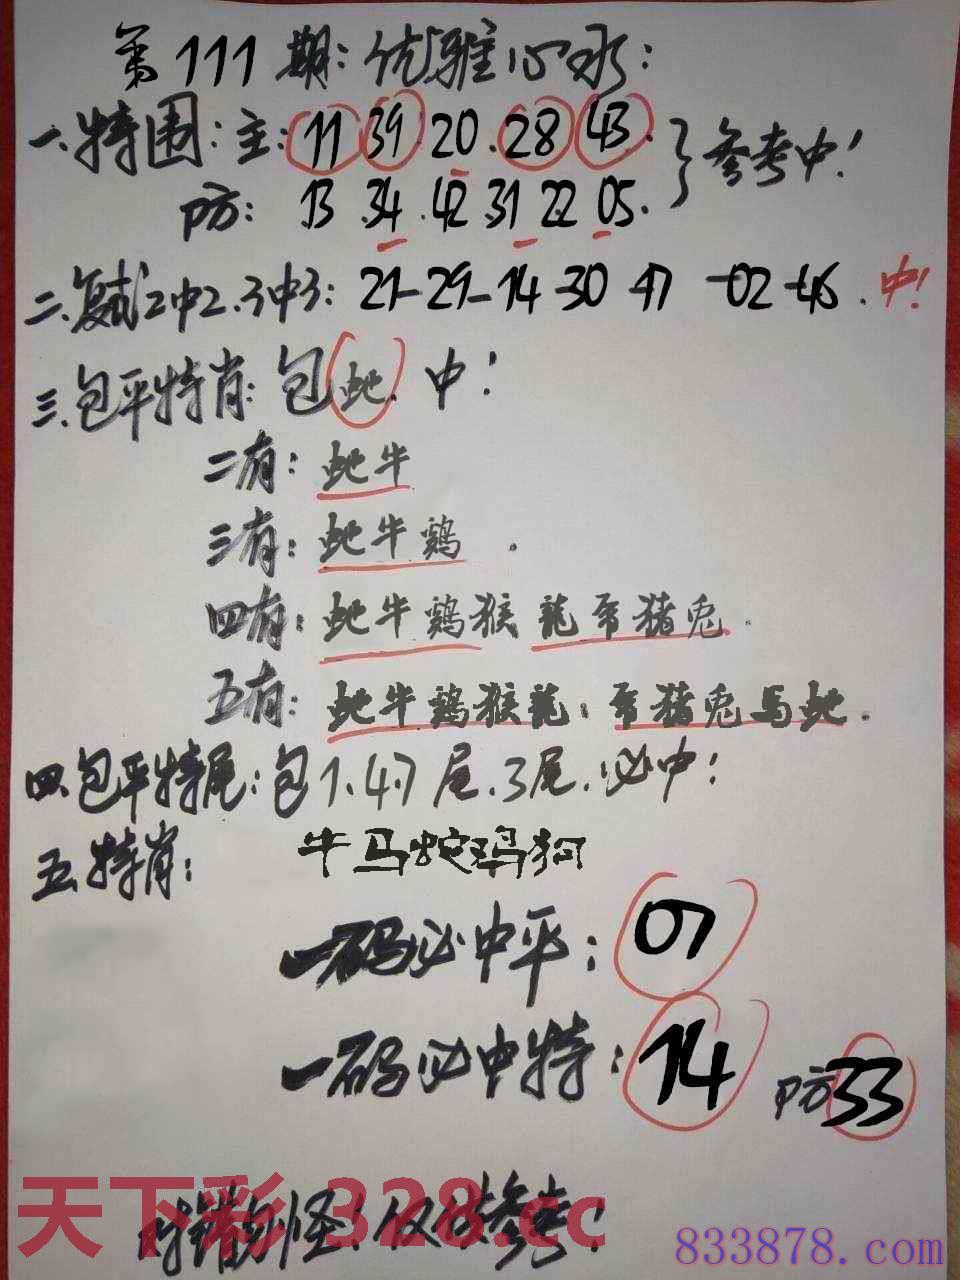 第111期:优雅心水:
一.特围:主:11 39 20.28 43.
防: 13.34.42.31 22 05.
参考中!
二.复式2中2.3中3: 21-29-14-30-47-02-46.中!
三.包平特肖:包蛇.中!
二有:蛇牛
三有:蛇牛鷄.
四有:蛇牛鷄猴 龍 猪兔.
五有:蛇牛鷄猴龍: 猪兔马蛇.
四.包平特尾:包1.4.7尾.3尾.必中!
五.特肖: 牛马蛇鸡狗
一码必中平: 07
一码必中特: 14 防33
对错勿怪!仅供参考!
天下彩 328.cc
833878.com